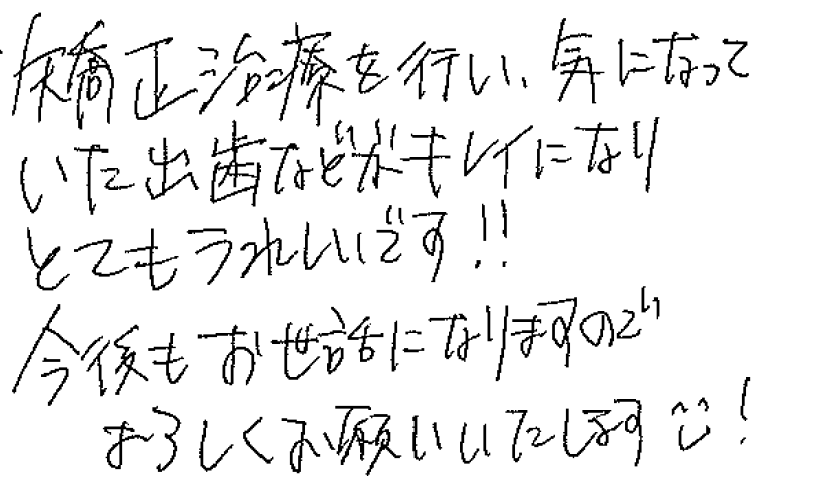 矯正治療を行い、気になって
いた出歯などがキレイになり
とてもうれしいです!!
今後もお世話になりますので
よろしくお願いいたします!